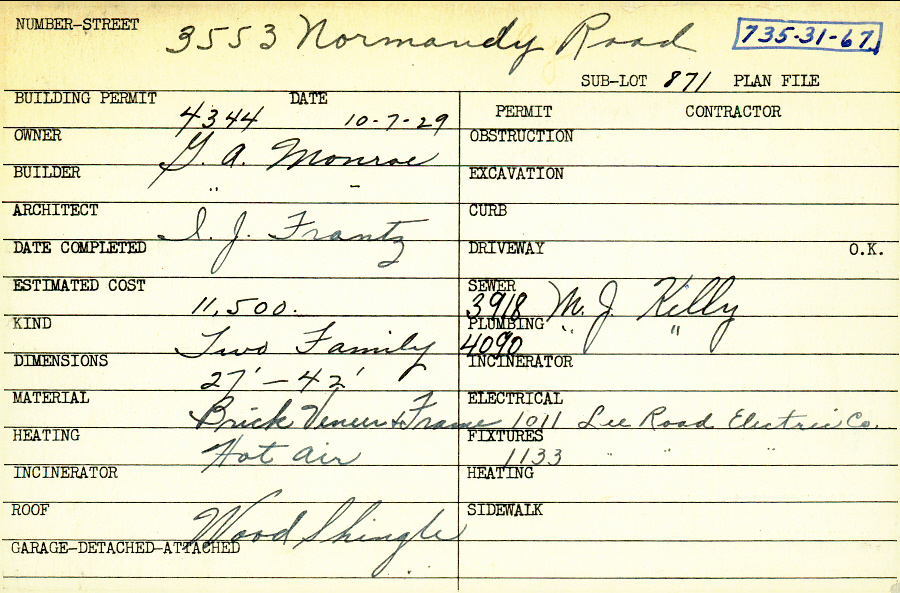 NUMBER-STREET 3553 Normandy Road 735-31-67
SUB-LOT 871 PLAN FILE
BUILDING PERMIT 4344 DATE 10-7-29
OWNER G. A. Monroe
BUILDER " "
ARCHITECT I. J. Frantz
DATE COMPLETED
ESTIMATED COST 11,500.
KIND Two Family
DIMENSIONS 27' - 42'
MATERIAL Brick Veneer & Frame
HEATING Hot air
INCINERATOR
ROOF Wood Shingle
GARAGE-DETACHED-ATTACHED
PERMIT CONTRACTOR
OBSTRUCTION
EXCAVATION
CURB
DRIVEWAY O.K.
SEWER 3918 M. J. Killy
PLUMBING 4090 " "
INCINERATOR
ELECTRICAL 1011 Lee Road Electric Co.
FIXTURES 1133 " " "
HEATING
SIDEWALK